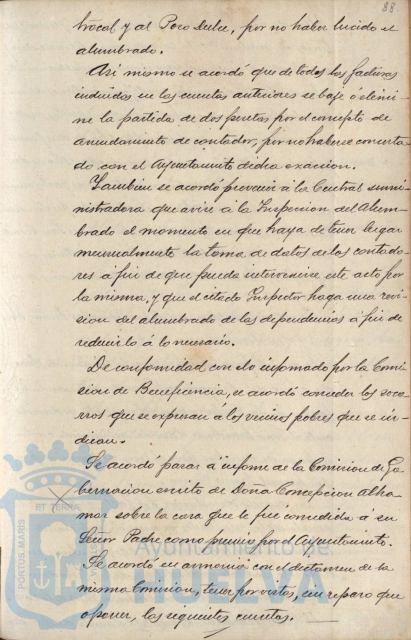 88
brocal y al Pozo Dulce, por no haber lucido el
alumbrado.
Asi mismo se acordó que de todas las facturas
incluidas en las cuentas anteriores se baje ó elimi-
ne la partida de dos pesetas por el concepto de
arrendamiento de contador, por no haberse concerta-
do con el Ayuntamiento dicha exaccion.
Tambien se acordó prevenir á la Central sumi-
nistradora que avise á la Inspeccion del Alum-
brado el momento en que haya de tener lugar
mensualmente la toma de datos de los contado-
res á fin de que pueda intervenirse este acto por
la misma, y que el citado Inspector haga una revi-
sion del alumbrado de las dependencias á fin de
reducirlo á lo necesario.
De conformidad con lo informado por la Comi-
sion de Beneficencia, se acordó conceder los soco-
rros que se expresan á los vecinos pobres que se in-
dican.
Se acordó pasar á informe de la Comision de Go-
bernacion escrito de Doña Concepcion Alha-
mar sobre la casa que le fué concedida á su
Señor Padre como premio por el Ayuntamiento.
Se acordó en armonia con el dictamen de la
misma Comision, tener por vistas, sin reparo que
oponer, las siguientes cuentas.
PORTUS MARIS
ET TERRÆ
Ayuntamiento de
HUELVA